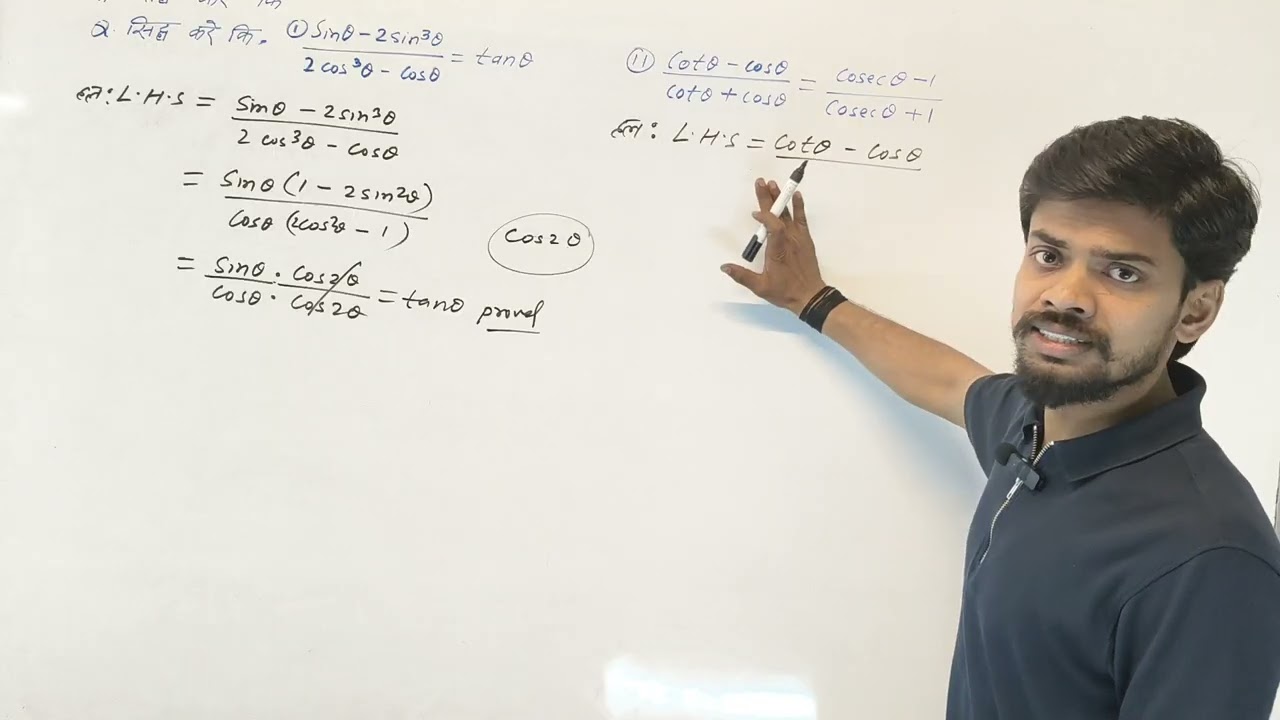 कि
2. सिद्ध करे कि. ① sinθ - 2sin³θ / 2cos³θ - cosθ = tanθ
हल: L.H.S = sinθ - 2sin³θ / 2cos³θ - cosθ
= sinθ (1 - 2sin²θ) / cosθ (2cos²θ - 1)
cos2θ
= sinθ . cos2θ / cosθ . cos2θ = tanθ proved
⑪ cotθ - cosθ / cotθ + cosθ = cosecθ - 1 / cosecθ + 1
हल: L.H.S = cotθ - cosθ